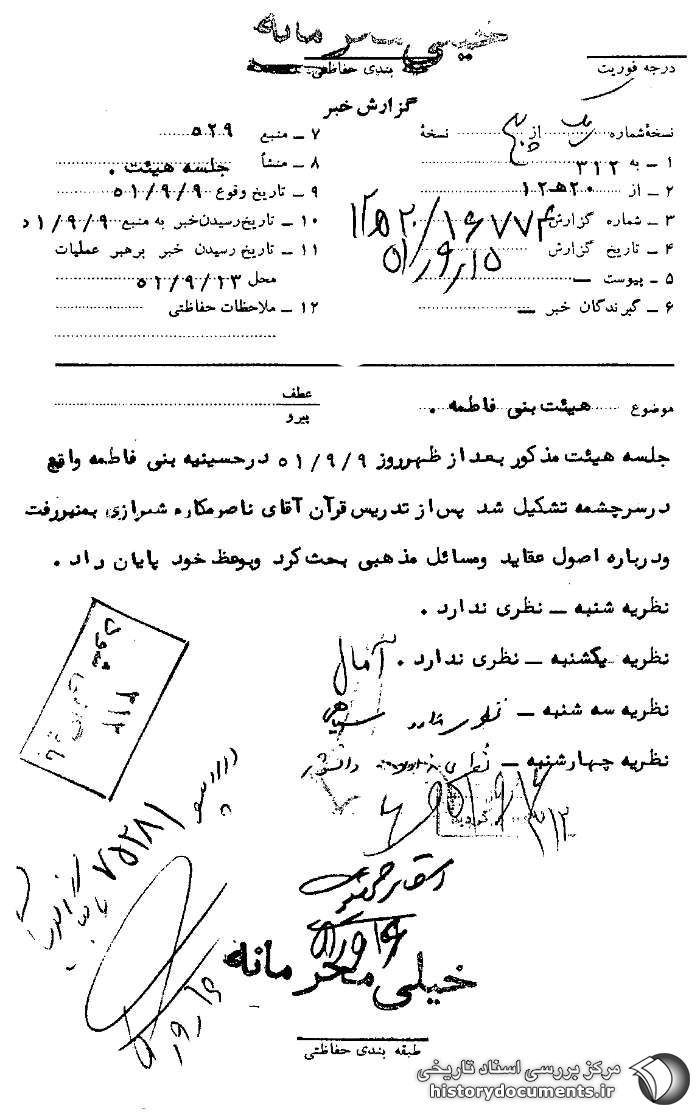 خیلی محرمانه
طبقه بندی حفاظتی
درجه فوریت
گزارش خبر
نسخهٔ شماره یک از پنج نسخهٔ
۱ – به ۳۱۲
۲ – از ۲۰هـ۱۲
۳ – شماره گزارش ۱۶۷۷۴/۲۰هـ۱۲
۴ – تاریخ گزارش ۵۱/۹/۱۵
۵ – پیوست –
۶ – گیرندگان خبر –
۷ – منبع ۵۲۹
۸ – منشأ جلسه هیئت .
۹ – تاریخ وقوع ۵۱/۹/۹
۱۰ – تاریخ رسیدن خبر به منبع ۵۱/۹/۹
۱۱ – تاریخ رسیدن خبر برهبر عملیات
محل ۵۱/۹/۱۳
۱۲ – ملاحظات حفاظتی
موضوع هیئت بنی فاطمه .
عطف
پیرو
جلسه هیئت مذکور بعد از ظهر روز ۵۱/۹/۹ در حسینیه بنی فاطمه واقع
در سرچشمه تشکیل شد پس از تدریس قرآن آقای ناصر مکارم شیرازی بمنبر رفت
و درباره اصول عقاید و مسائل مذهبی بحث کرد و بوعظ خود پایان داد .
نظریه شنبه – نظری ندارد .
نظریه یکشنبه – نظری ندارد . آمال
نظریه سه شنبه – نظری ندارد سپاهی
نظریه چهارشنبه – نظری ندارد دانشور
بایگانی شود
۳۱۲
۳۱۲
۷۵۲۸۱
خیلی محرمانه
طبقه بندی حفاظتی
مرکز بررسی اسناد تاریخی
historydocuments.ir